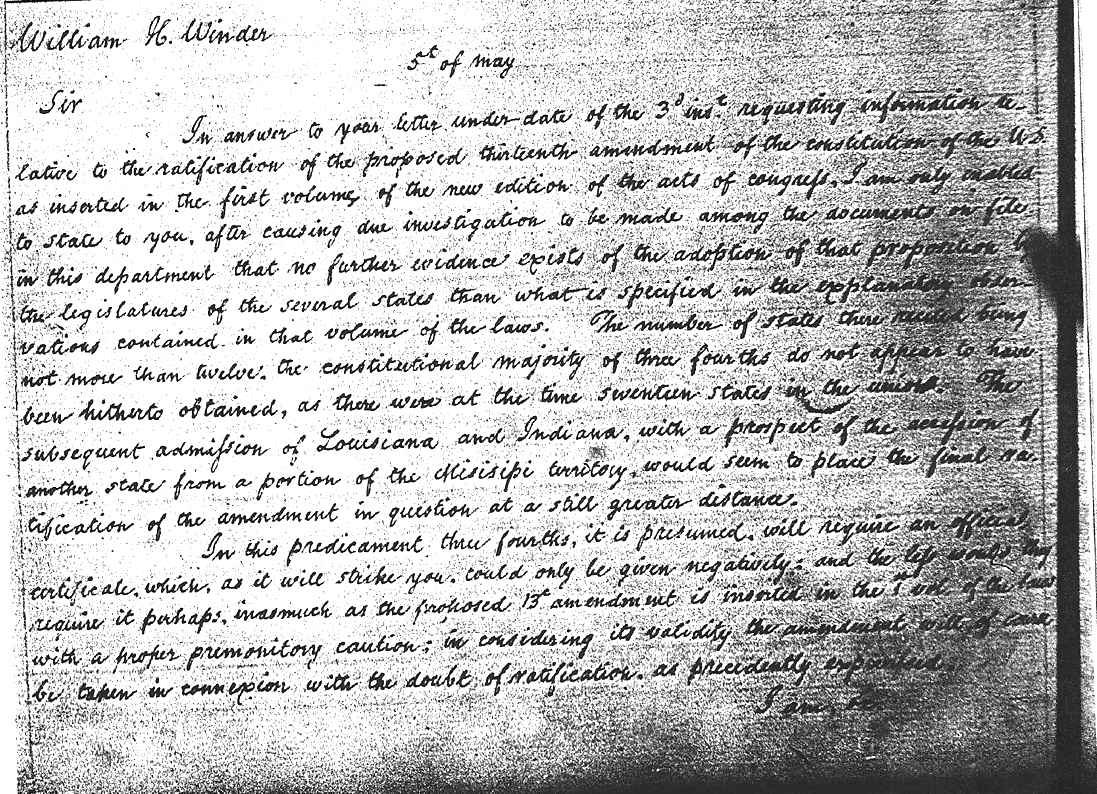 William H. Winder
5t of may
Sir
In answer to your letter under date of the 3d inst. requesting information re-
lative to the ratification of the proposed thirteenth amendment of the constitution of the U.S.
as inserted in the first volume, of the new edition of the acts of congress, I am only enabled
to state to you, after causing due investigation to be made among the documents on file
in this department that no further evidence exists of the adoption of that proposition by
the legislatures of the several states than what is specified in the explanatory obser-
vations contained in that volume of the laws. The number of states there recited being
not more than twelve, the constitutional majority of three fourths do not appear to have
been hitherto obtained, as there were at the time seventeen states in the union. The
subsequent admission of Louisiana and Indiana, with a prospect of the accession of
another state from a portion of the Misisipi territory, would seem to place the final ra-
tification of the amendment in question at a still greater distance.
In this predicament three fourths, it is presumed, will require an official
certificate, which, as it will strike you, could only be given negatively; and the less would they
require it perhaps, inasmuch as the proposed 13t amendment is inserted in the 1st vol. of the laws
with a proper premonitory caution; in considering its validity the amendment will of course
be taken in connexion with the doubt of ratification, as precedently
I am, &c.